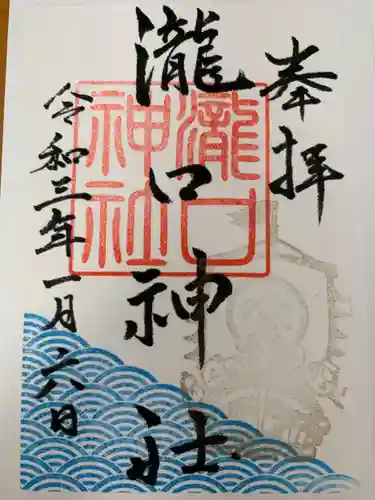 奉拝
瀧口神社
瀧口神社
令和三年一月六日